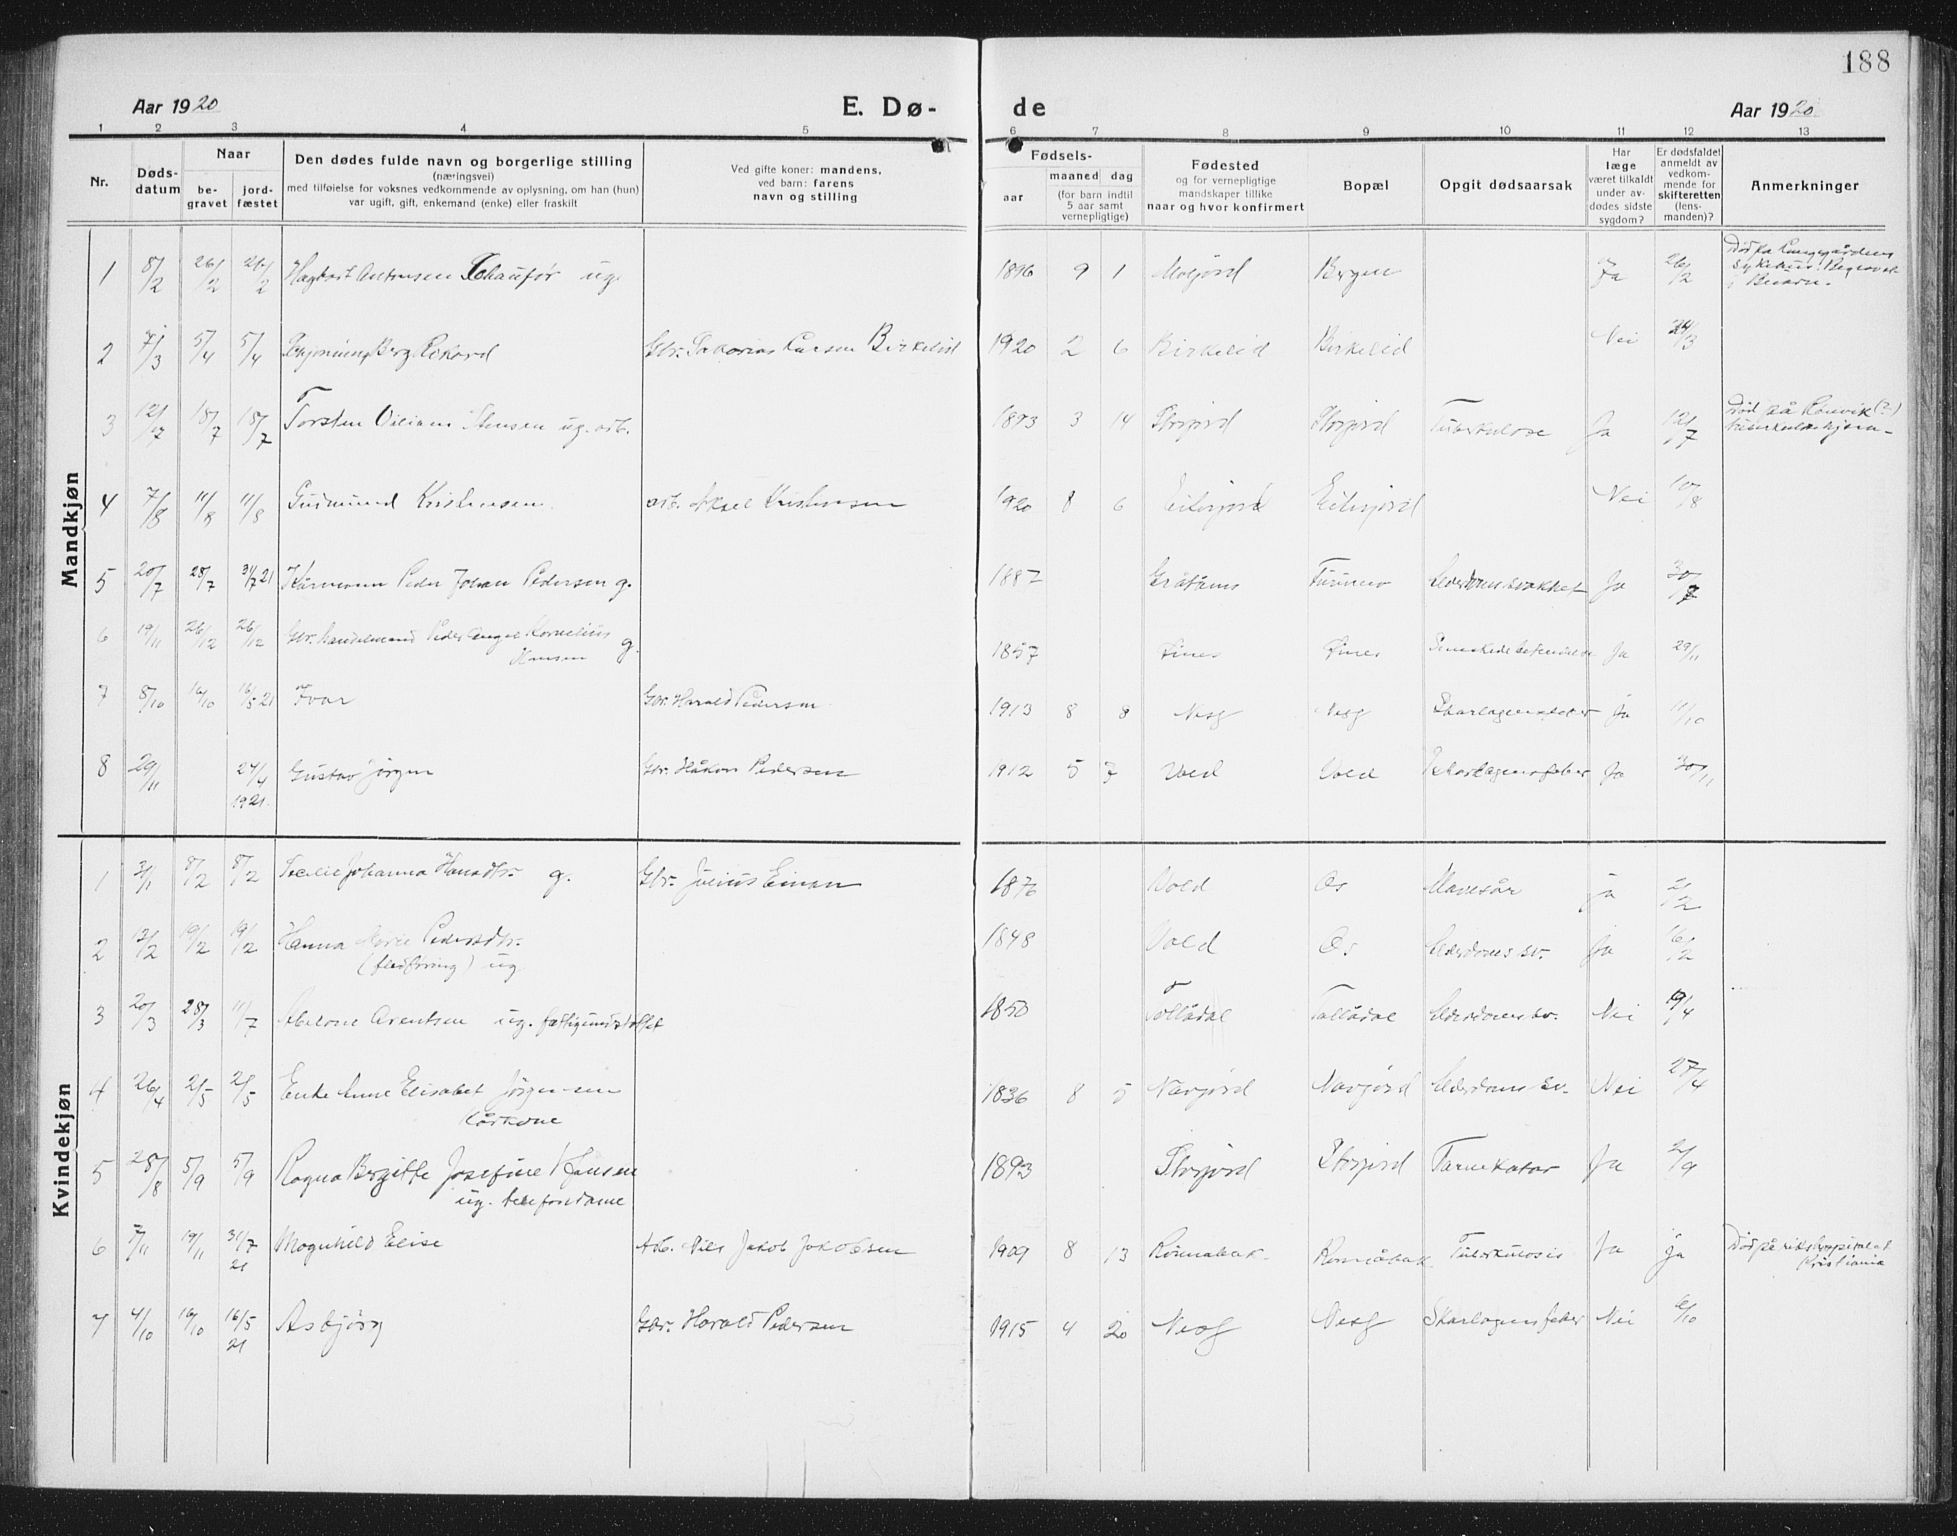 188
Aar 1920
E. Dø-
de
Aar 1920
1 2 3 4 5 6 7 8 9 10 11 12 13
Nr.
Døds-
datum
Naar
be-
gravet
jord-
fæstet
Den dødes fulde navn og borgerlige stilling
(næringsvei)
med tilføielse for voksnes vedkommende av oplysning, om han (hun)
var ugift, gift, enkemand (enke) eller fraskilt
Ved gifte koner: mandens,
ved barn: farens
navn og stilling
Fødsels-
aar
maaned dag
(for barn indtil
5 aar samt
vernepligtige)
Fødested
og for vernepligtige
mandskaper tillike
naar og hvor konfirmert
Bopæl
Opgit dødsaarsak
Har
læge
været tilkaldt
under av-
dødes sidste
sygdom?
Er dødsfaldet
anmeldt av
vedkom-
mende for
skifteretten
(lens-
manden)?
Anmerkninger
Mandkjøn
1 8/2 26/2 26/2 Hagbart Antonsen Chaufør ug. 1896 9 1 Moljord Bergen Ja 26/2
2 7/3 5/4 5/4 Berg Rikard Gbr. Birkelid 1920 2 6 Birkelid Birkelid Nei 24/3
3 12/7 18/7 18/7 Torsten Viliam Stensen ug. arb. 1893 3 14 Storjord Storjord Tuberkulose Ja 12/7 Død på Rønvik (?)
4 7/8 11/8 11/8 Gudmund Kristensen arb. Aksel Kristensen 1920 8 6 Eilivjord Eilivjord Nei 10/8
5 20/7 28/7 31/7 21 Kårmann Peder Johan Pedersen g. 1887 Gråtånes Alderdomssvakhet Ja 30/7
6 19/11 26/12 26/12 Gbr. Handelsmand Peder Angel Kornelius
Hansen g. 1857 Øines Øines Ja 29/11
7 8/10 16/10 16/5 21 Ivar Gbr. Harald Pedersen 1913 8 8 Nesø Nesø Skarlagensfeber Ja 11/10
8 29/11 24/4
1921 Gustav Jørgen Gbr. Håkon Pedersen 1912 5 7 Vold Vold Skarlagensfeber Ja 30/11
Kvindekjøn
1 31/1 8/2 8/2 Cecilie Johanna Hansdtr. g. Gbr. Julius Einan 1876 Vold Os Mavesår ja 2/2
2 12/2 19/2 19/2 Hanna Marie Pedersdtr.
(fledføring) ug 1848 Vold Os Alderdoms sv. Ja 16/2
3 20/3 28/3 11/7 Abelone Arentsen ug. fattigunderstøttet 1850 Tollådal Tollådal Alderdoms sv. Nei 9/4
4 26/4 2/5 2/5 Enke Anne Elisabet Jørgensen
Kårkone 1836 8 5 Navjord Navjord Alderdoms sv. Nei 27/4
5 28/8 5/9 5/9 Ragna Birgitte Josefine Hansen
ug. telefondame 1893 Storjord Storjord Tarmkatar Ja 2/9
6 7/11 19/11 31/7
21 Magnhild Elise Arb. Nils Jakob Jakobsen 1909 8 13 Rønnabak Tuberkulosis Ja Ja Død på rikshospitalet
Kristiania
7 4/10 16/10 16/5
21 Asbjørg Gbr. Harald Pedersen 1915 4 20 Nesø Nesø Skarlagensfeber Nei 6/10